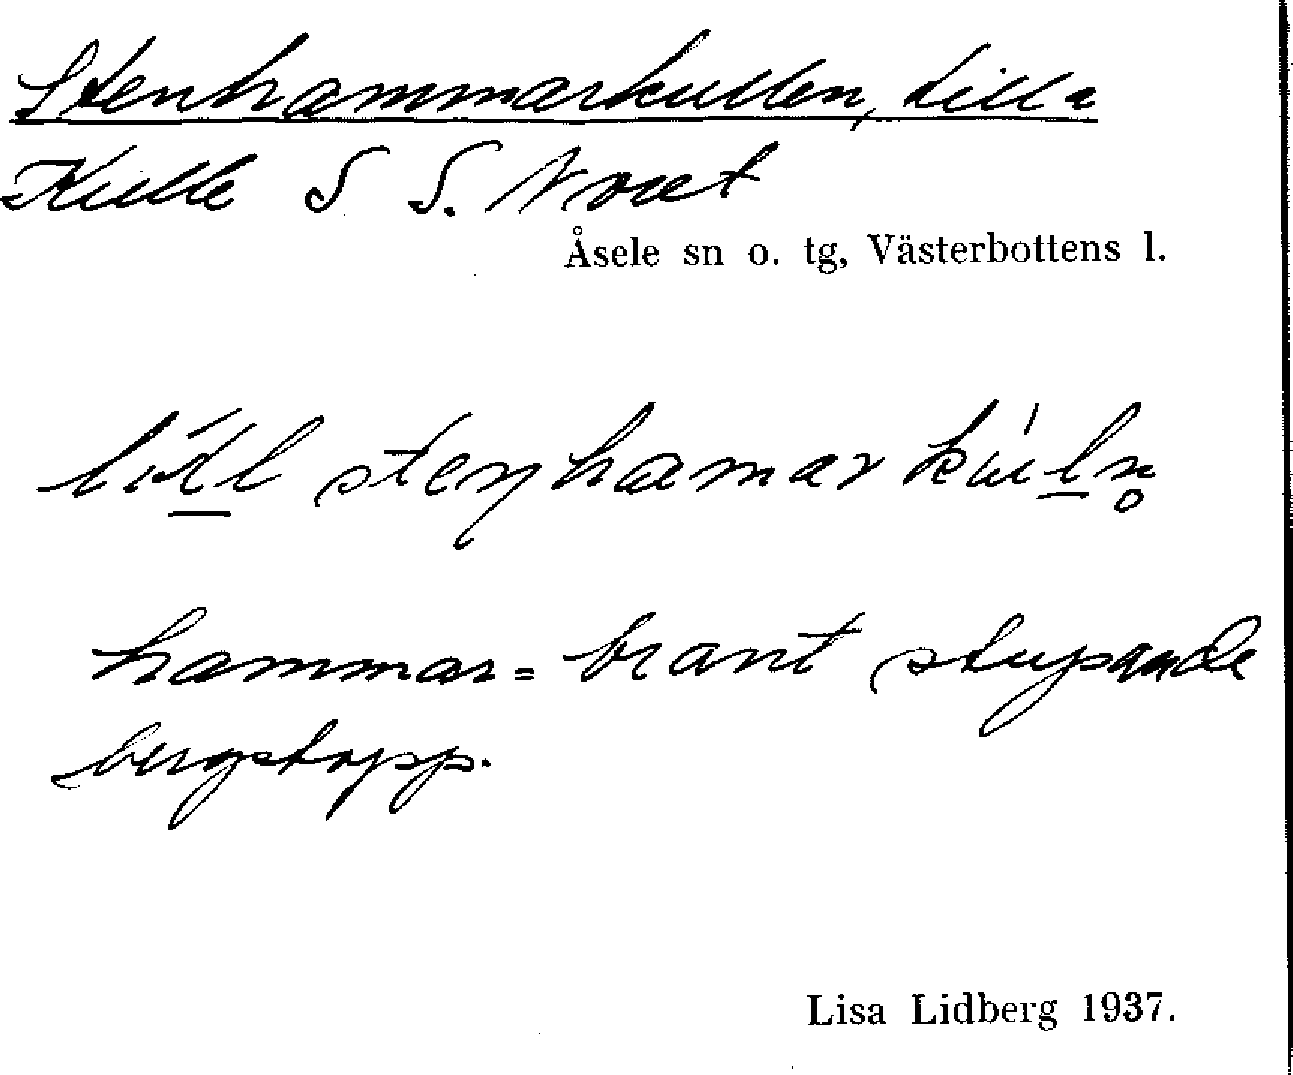 Stenhammarkullen, Lilla
Kulle S S. Noret
Åsele sn o. tg, Västerbottens l.
lìtl stenhamarkúln̥
hammar = brant stupande
bergstopp.
Lisa Lidberg 1937.